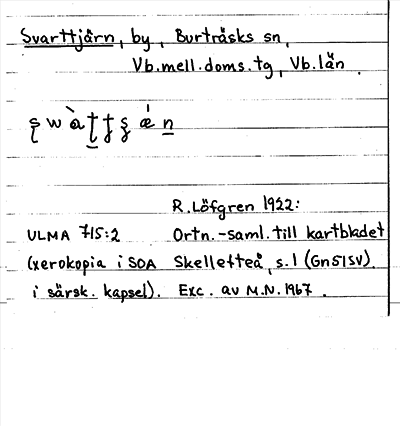 Svarttjärn, by, Burträsks sn,
Vb.mell.doms.tg, Vb.län.
R.Löfgren 1922:
ULMA 715:2 Ortn.-saml. till kartbladet
(xerokopia i SOA Skellefteå, s.1 (Gn51SV)
i särsk. kapsel). Exc. av M.N. 1967.